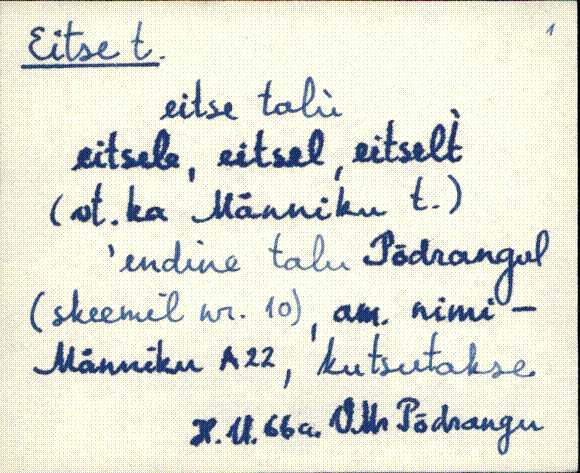 1
Eitse t.
eitse talù
eitsele, eitsel, eitselt̀
(vt. ka Männiku t.)
'endine talu Põdrangul
(skeemil nr. 10), am. nimi –
Männiku A 22, kutsutakse.
H. U. 66a. VMr Põdrangu